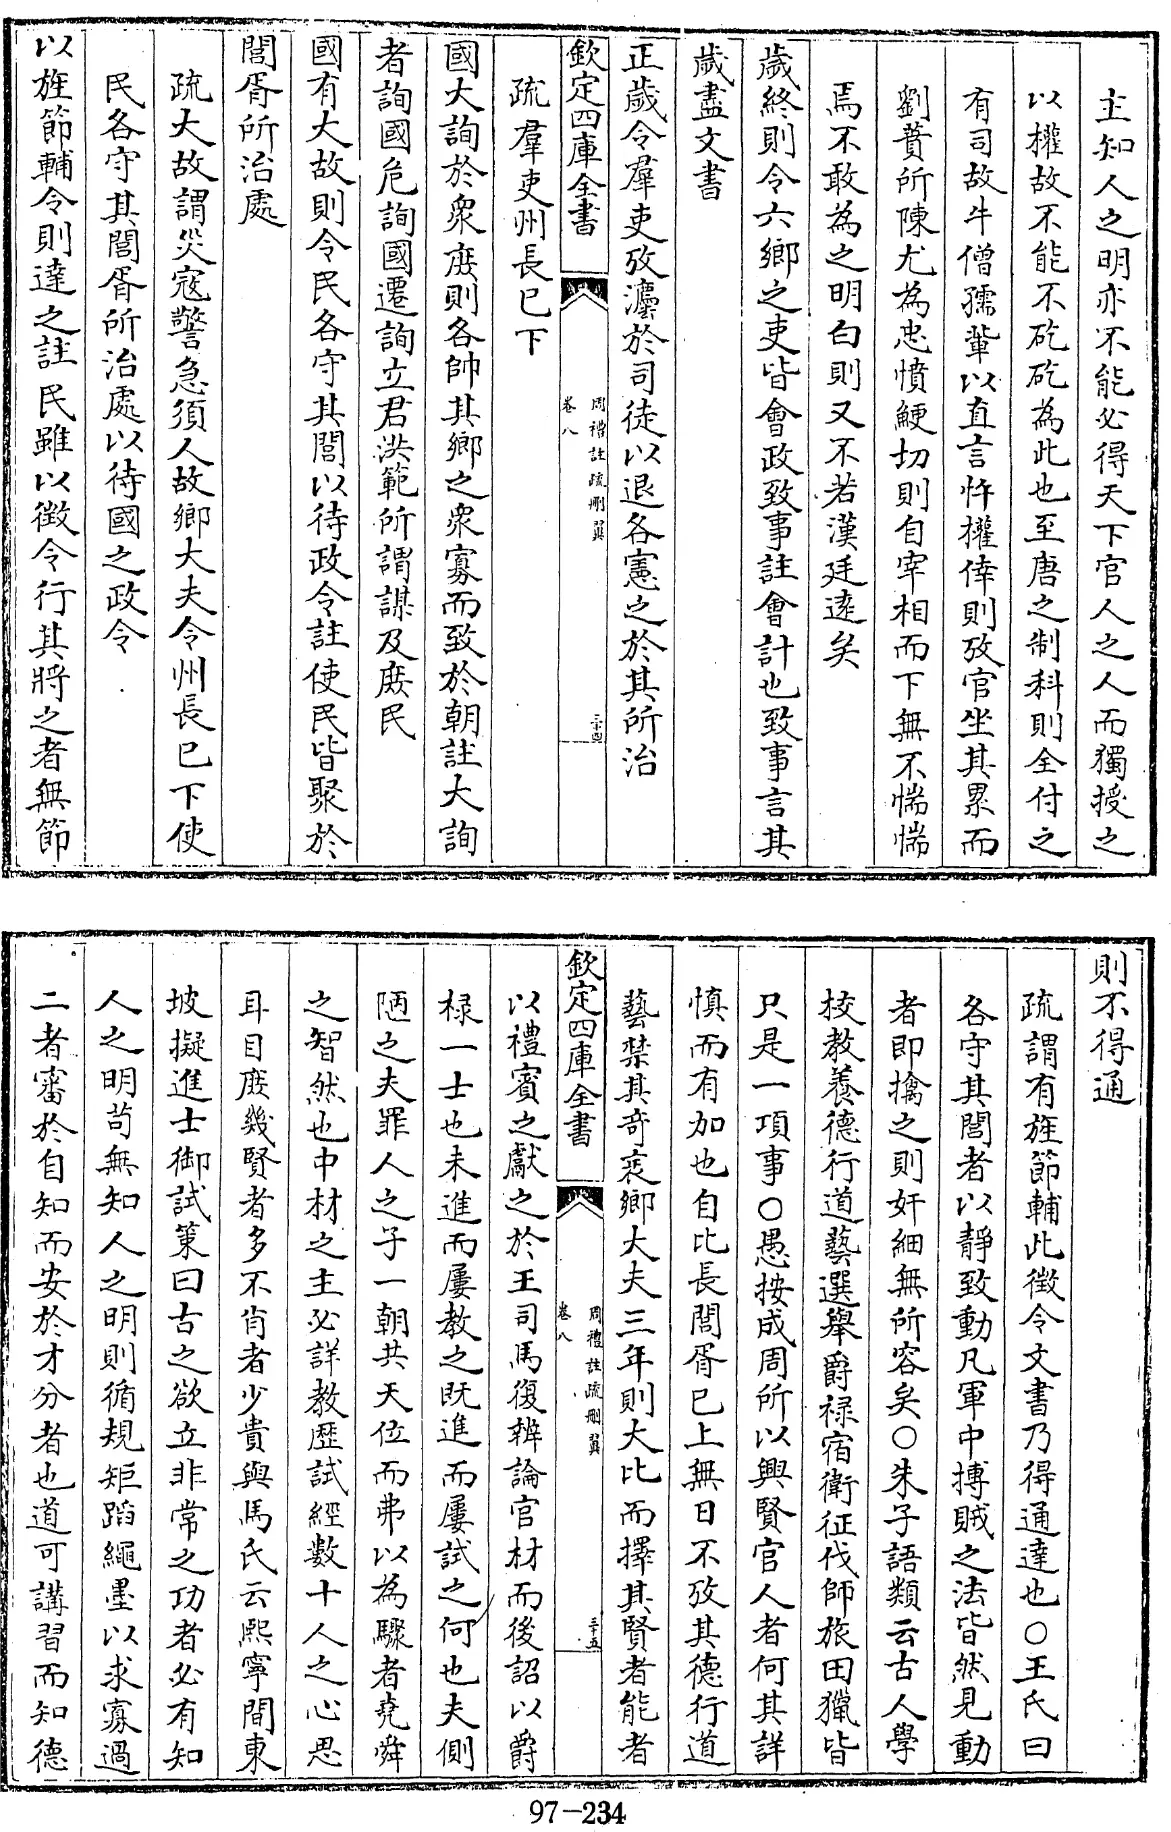 主知人之明亦不能必得天下官人之人而獨授之
以權故不能不矻矻為此也至唐之制科則全付之
有司故牛僧孺輩以直言忤權倖則攷官坐其累而
劉蕡所陳尤為忠憤鯁切則自宰相而下無不惴惴
焉不敢為之明白則又不若漢廷逺矣
歲終則令六鄉之吏皆會政致事註會計也致事言其
歲盡文書
正歲令羣吏攷灋於司徒以退各憲之於其所治
欽定四庫全書
周禮註疏刪翼
卷八
三十四
疏羣吏州長已下
國大詢於衆庶則各帥其鄉之衆寡而致於朝註大詢
者詢國危詢國遷詢立君洪範所謂謀及庶民
國有大故則令民各守其閭以待政令註使民皆聚於
閭胥所治處
疏大故謂災寇警急須人故鄉大夫令州長已下使
民各守其閭胥所治處以待國之政令
以旌節輔令則達之註民雖以徵令行其將之者無節
則不得通
疏謂有旌節輔此徵令文書乃得通達也○王氏曰
各守其閭者以靜致動凡軍中搏賊之法皆然見動
者即擒之則奸細無所容矣○朱子語類云古人學
校教養德行道藝選舉爵禄宿衛征伐師旅田獵皆
只是一項事○愚按成周所以興賢官人者何其詳
慎而有加也自比長閭胥已上無日不攷其德行道
藝禁其奇衺鄉大夫三年則大比而擇其賢者能者
欽定四庫全書
周禮註疏刪翼
卷八
三十五
以禮賓之獻之於王司馬復辨論官材而後詔以爵
禄一士也未進而屢教之既進而屢試之何也夫側
陋之夫罪人之子一朝共天位而弗以為驟者堯舜
之智然也中材之主必詳教歴試經數十人之心思
耳目庶幾賢者多不肖者少貴與馬氏云熙寧間東
坡擬進士御試策曰古之欲立非常之功者必有知
人之明苟無知人之明則循規矩蹈繩墨以求寡過
二者審於自知而安於才分者也道可講習而知德
97-234